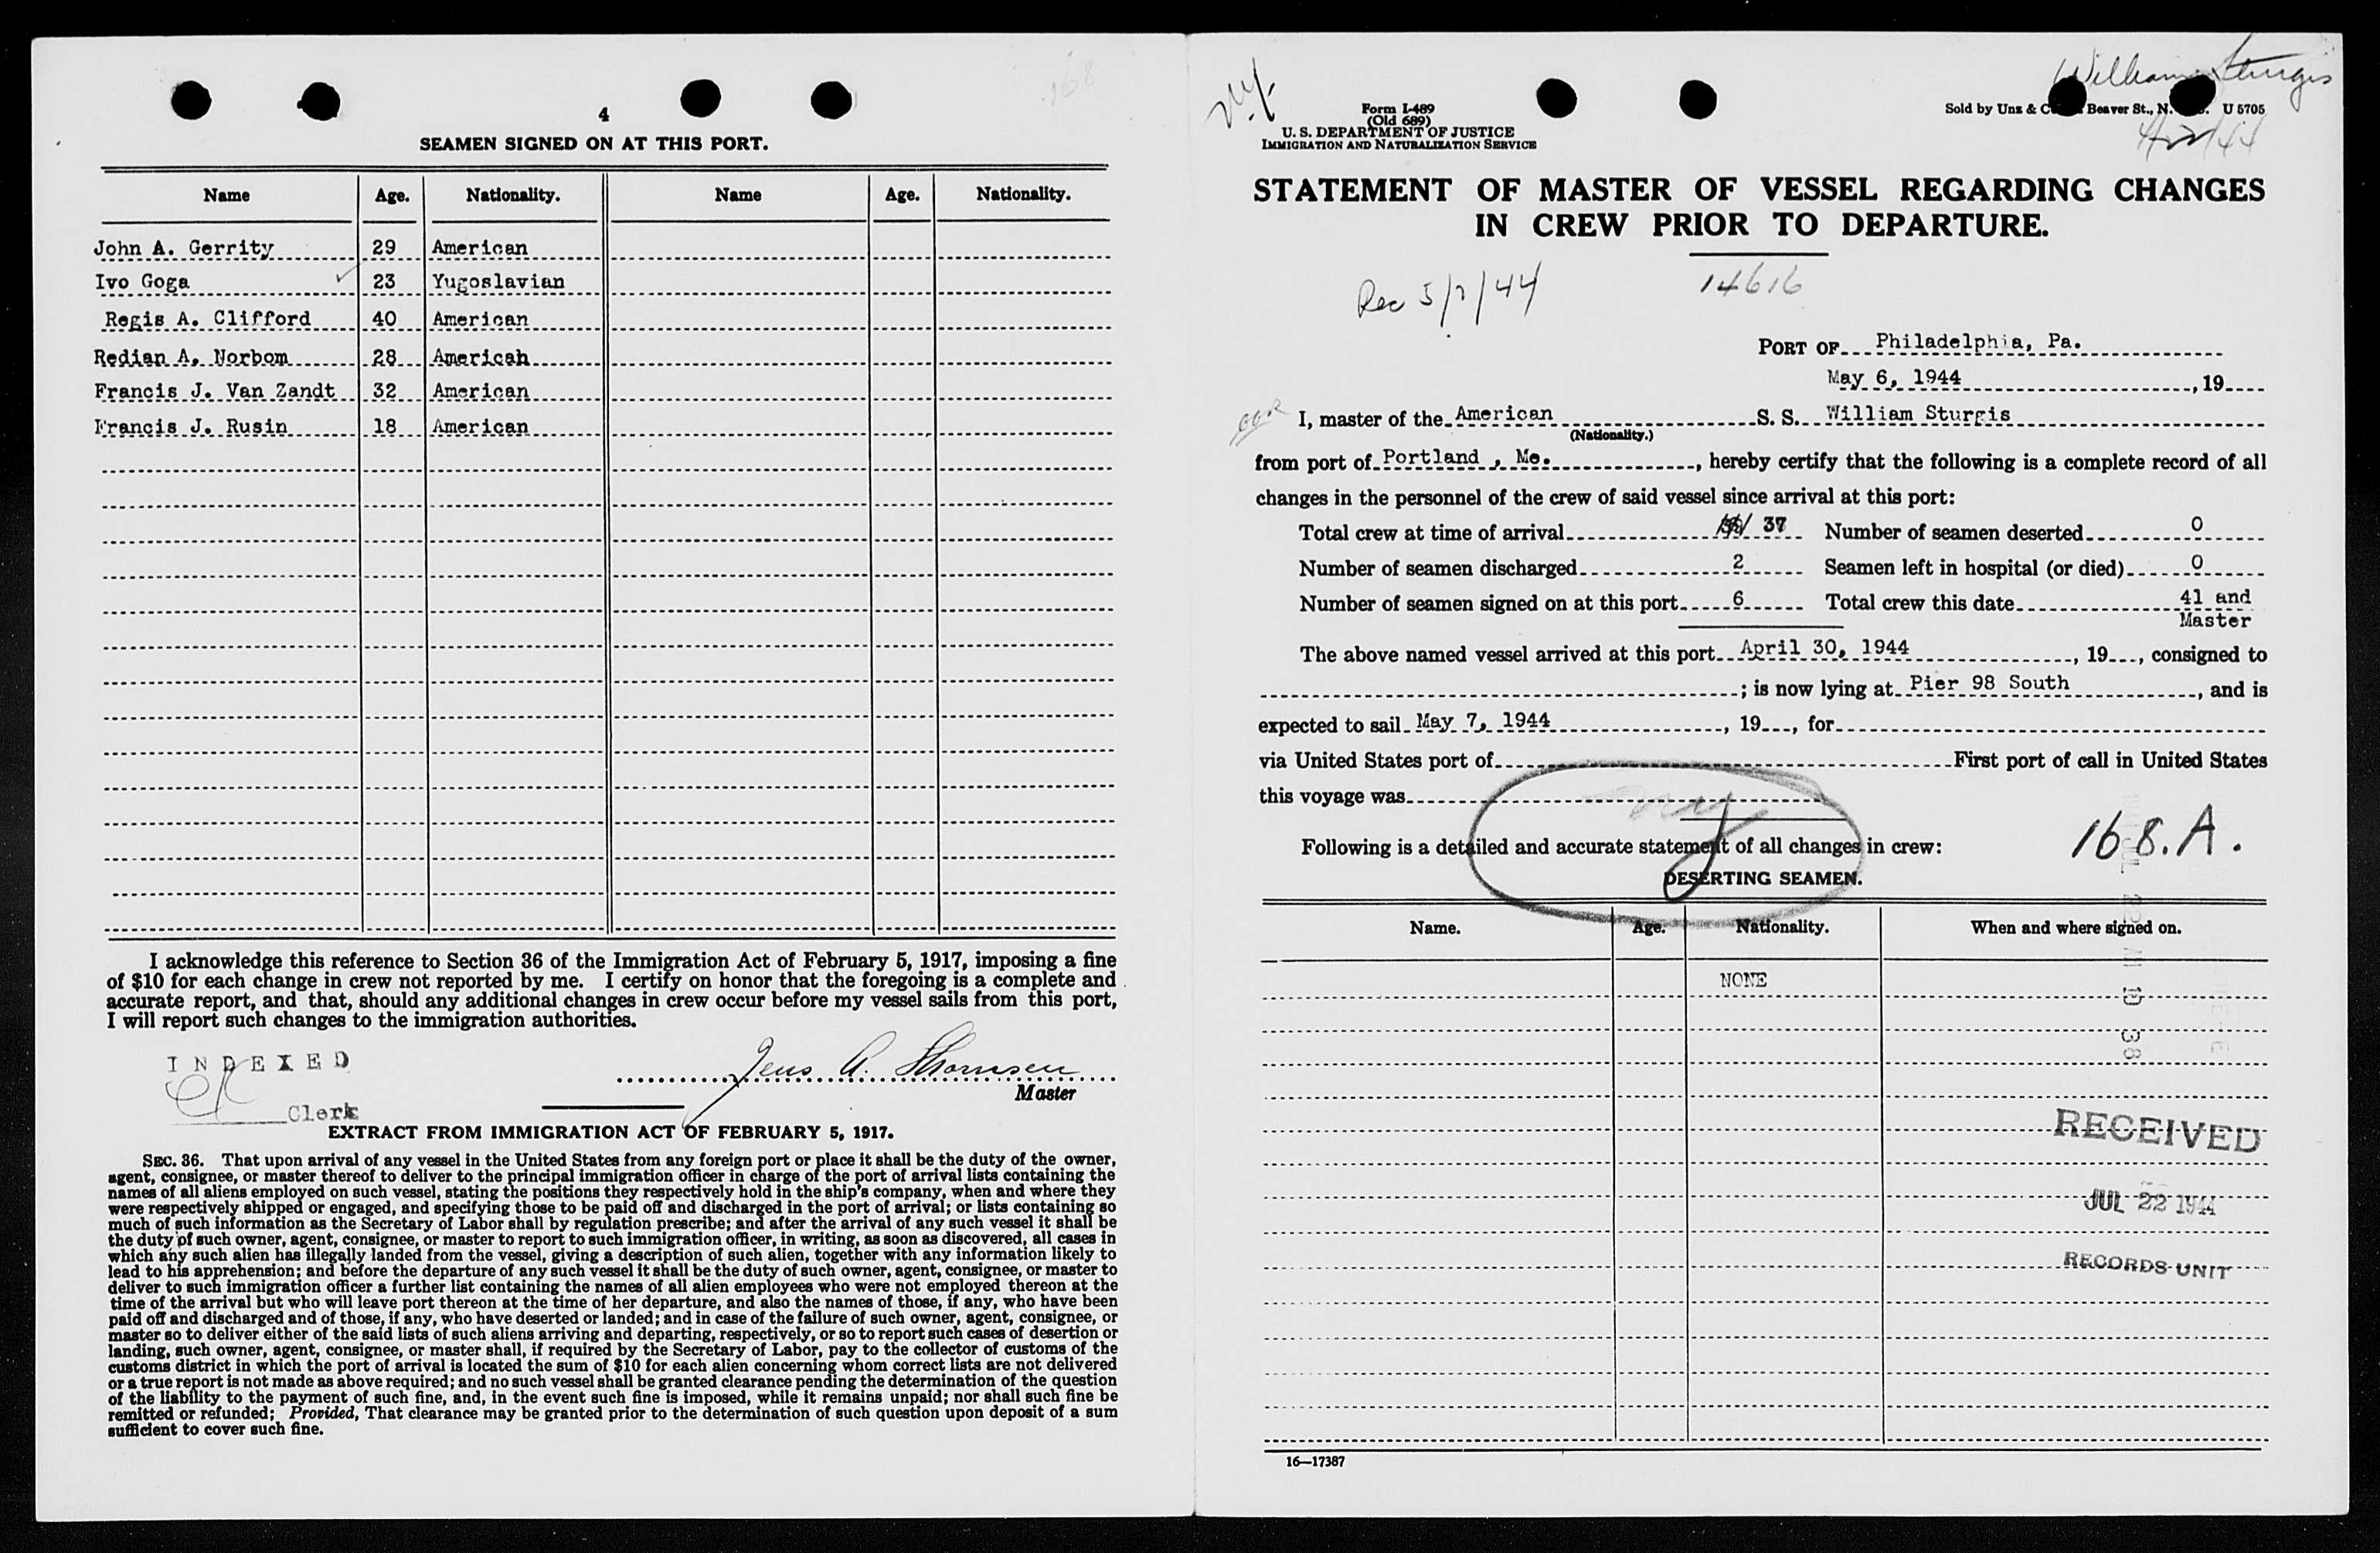 4
SEAMEN SIGNED ON AT THIS PORT.
Name Age. Nationality. Name Age. Nationality.
John A. Gerrity 29 American
Ivo Goga 23 Yugoslavian
Regis A. Clifford 40 American
Redian A. Norbom 28 American
Francis J. Van Zandt 32 American
Francis J. Rusin 18 American
I acknowledge this reference to Section 36 of the Immigration Act of February 5, 1917, imposing a fine
of $10 for each change in crew not reported by me. I certify on honor that the foregoing is a complete and
accurate report, and that, should any additional changes in crew occur before my vessel sails from this port,
I will report such changes to the immigration authorities.
INDEXED
Jens A. Thomsen
Master
Clerk
EXTRACT FROM IMMIGRATION ACT OF FEBRUARY 5, 1917.
SEC. 36. That upon arrival of any vessel in the United States from any foreign port or place it shall be the duty of the owner,
agent, consignee, or master thereof to deliver to the principal immigration officer in charge of the port of arrival lists containing the
names of all aliens employed on such vessel, stating the positions they respectively hold in the ship's company, when and where they
were respectively shipped or engaged, and specifying those to be paid off and discharged in the port of arrival; or lists containing so
much of such information as the Secretary of Labor shall by regulation prescribe; and after the arrival of any such vessel it shall be
the duty of such owner, agent, consignee, or master to report to such immigration officer, in writing, as soon as discovered, all cases in
which any such alien has illegally landed from the vessel, giving a description of such alien, together with any information likely to
lead to his apprehension; and before the departure of any such vessel it shall be the duty of such owner, agent, consignee, or master to
deliver to such immigration officer a further list containing the names of all alien employees who were not employed thereon at the
time of the arrival but who will leave port thereon at the time of her departure, and also the names of those, if any, who have been
paid off and discharged and of those, if any, who have deserted or landed; and in case of the failure of such owner, agent, consignee, or
master so to deliver either of the said lists of such aliens arriving and departing, respectively, or so to report such cases of desertion or
landing, such owner, agent, consignee, or master shall, if required by the Secretary of Labor, pay to the collector of customs of the
customs district in which the port of arrival is located the sum of $10 for each alien concerning whom correct lists are not delivered
or a true report is not made as above required; and no such vessel shall be granted clearance pending the determination of the question
of the liability to the payment of such fine, and, in the event such fine is imposed, while it remains unpaid; nor shall such fine be
remitted or refunded; Provided, That clearance may be granted prior to the determination of such question upon deposit of a sum
sufficient to cover such fine.
William Sturgis
Form I-489
(Old 689)
U. S. DEPARTMENT OF JUSTICE
IMMIGRATION AND NATURALIZATION SERVICE
Sold by Unz & C Beaver St., N. U 5705
STATEMENT OF MASTER OF VESSEL REGARDING CHANGES
IN CREW PRIOR TO DEPARTURE.
Rec 5/7/44 14616
PORT OF Philadelphia, Pa.
May 6, 1944, 19
I, master of the American S. S. William Sturgis
(Nationality.)
from port of Portland, Me., hereby certify that the following is a complete record of all
changes in the personnel of the crew of said vessel since arrival at this port:
Total crew at time of arrival 37 Number of seamen deserted 0
Number of seamen discharged 2 Seamen left in hospital (or died) 0
Number of seamen signed on at this port 6 Total crew this date 41 and
Master
The above named vessel arrived at this port April 30, 1944, 19, consigned to
; is now lying at Pier 98 South, and is
expected to sail May 7, 1944, 19, for
via United States port of First port of call in United States
this voyage was
ny
168.A.
Following is a detailed and accurate statement of all changes in crew:
DESERTING SEAMEN.
Name. Age. Nationality. When and where signed on.
NONE
RECEIVED
JUL 22 1944
RECORDS UNIT
16—17387